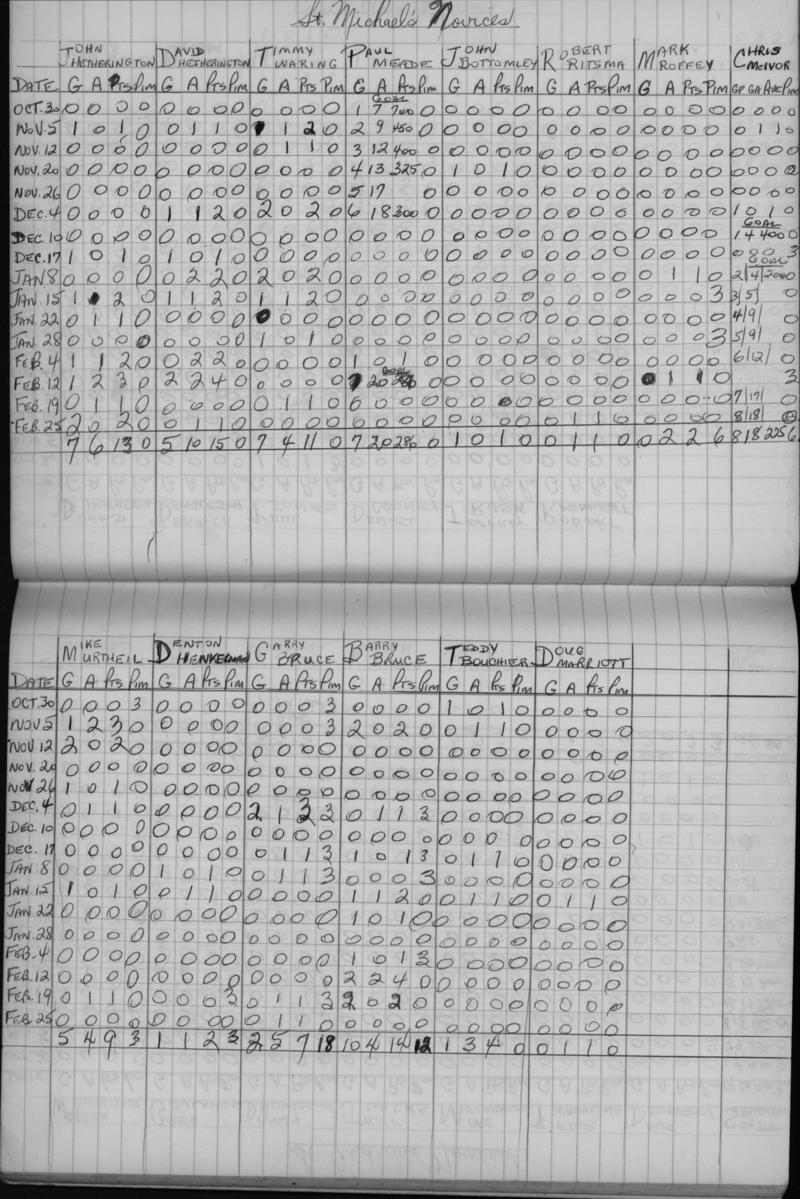 St. Michael's Novices
JOHN HETHERINGTON DAVID HETHERINGTON TIMMY WARING PAUL MEADE JOHN BOTTOMLEY ROBERT RITSMA MARK ROFFEY CHRIS McIVOR
DATE G A Pts Pim G A Pts Pim G A Pts Pim G A Pts Pim G A Pts Pim G A Pts Pim G A Pts Pim GP GA AVE Pim
GOAL
OCT. 30 0 0 0 0 0 0 0 0 0 0 0 0 1 7 700 0 0 0 0 0 0 0 0 0 0 0 0 0 0 0 0 0
NOV. 5 1 0 1 0 0 1 1 0 1 1 2 0 2 9 450 0 0 0 0 0 0 0 0 0 0 0 0 0 0 1 1 0
NOV. 12 0 0 0 0 0 0 0 0 0 1 1 0 3 12 400 0 0 0 0 0 0 0 0 0 0 0 0 0 0 0 0 0
NOV. 20 0 0 0 0 0 0 0 0 0 0 0 0 4 13 325 0 1 0 1 0 0 0 0 0 0 0 0 0 0 0 0 0
NOV. 26 0 0 0 0 0 0 0 0 0 0 0 0 5 17 0 0 0 0 0 0 0 0 0 0 0 0 0 0 0 0 0
DEC. 4 0 0 0 0 1 1 2 0 2 0 2 0 6 18 300 0 0 0 0 0 0 0 0 0 0 0 0 0 1 0 1 0
GOAL
DEC. 10 0 0 0 0 0 0 0 0 0 0 0 0 0 0 0 0 0 0 0 0 0 0 0 0 0 0 0 0 1 4 400 0
DEC. 17 1 0 1 0 1 0 1 0 0 0 0 0 0 0 0 0 0 0 0 0 0 0 0 0 0 0 0 0 0 0 0 3
GOAL
JAN 8 0 0 0 0 0 2 2 0 2 0 2 0 0 0 0 0 0 0 0 0 0 0 0 0 0 1 1 0 2/4/200 0
JAN. 15 1 1 2 0 1 1 2 0 1 1 2 0 0 0 0 0 0 0 0 0 0 0 0 0 0 0 0 3 3/5/ 0
JAN. 22 0 1 1 0 0 0 0 0 0 0 0 0 0 0 0 0 0 0 0 0 0 0 0 0 0 0 0 0 4/9/ 0
JAN. 28 0 0 0 0 0 0 0 0 1 0 1 0 0 0 0 0 0 0 0 0 0 0 0 0 0 0 0 3 5/9/ 0
FEB. 4 1 1 2 0 0 2 2 0 0 0 0 0 1 0 1 0 0 0 0 0 0 0 0 0 0 0 0 0 6/12/ 0
GOAL
FEB. 12 1 2 3 0 2 2 4 0 0 0 0 0 7 20 286 0 0 0 0 0 0 0 0 0 0 1 1 0 3
FEB. 19 0 1 1 0 0 0 0 0 0 1 1 0 0 0 0 0 0 0 0 0 0 0 0 0 0 0 0 0 7/17/ 0
FEB. 25 2 0 2 0 0 1 1 0 0 0 0 0 0 0 0 0 0 0 0 0 0 1 1 0 0 0 0 0 8/18/ 0
7 6 13 0 5 10 15 0 7 4 11 0 7 20 286 0 1 0 1 0 0 1 1 0 0 2 2 6 8 18 225 6
MIKE MURTHEIL DENTON HENKELMAN GARRY BRUCE BARRY BRUCE TEDDY BOUCHIER DOUG MARRIOTT
DATE G A Pts Pim G A Pts Pim G A Pts Pim G A Pts Pim G A Pts Pim G A Pts Pim
OCT. 30 0 0 0 3 0 0 0 0 0 0 0 3 0 0 0 0 1 0 1 0 0 0 0 0
NOV 5 1 2 3 0 0 0 0 0 0 0 0 3 2 0 2 0 0 1 1 0 0 0 0 0
NOV. 12 2 0 2 0 0 0 0 0 0 0 0 0 0 0 0 0 0 0 0 0 0 0 0 0
NOV. 20 0 0 0 0 0 0 0 0 0 0 0 0 0 0 0 0 0 0 0 0 0 0 0 0
NOV 26 1 0 1 0 0 0 0 0 0 0 0 0 0 0 0 0 0 0 0 0 0 0 0 0
DEC. 4 0 1 1 0 0 0 0 0 2 1 3 3 0 1 1 3 0 0 0 0 0 0 0 0
DEC. 10 0 0 0 0 0 0 0 0 0 0 0 0 0 0 0 0 0 0 0 0 0 0 0 0
DEC. 17 0 0 0 0 0 0 0 0 0 1 1 3 1 0 1 3 0 1 1 0 0 0 0 0
JAN 8 0 0 0 0 1 0 1 0 0 1 1 3 0 0 0 3 0 0 0 0 0 0 0 0
JAN. 15 1 0 1 0 0 1 1 0 0 0 0 0 1 1 2 0 0 1 1 0 0 1 1 0
JAN. 22 0 0 0 0 0 0 0 0 0 0 0 0 1 0 1 0 0 0 0 0 0 0 0 0
JAN. 28 0 0 0 0 0 0 0 0 0 0 0 0 0 0 0 0 0 0 0 0 0 0 0 0
FEB. 4 0 0 0 0 0 0 0 0 0 0 0 0 1 0 1 3 0 0 0 0 0 0 0 0
FEB. 12 0 0 0 0 0 0 0 0 0 0 0 0 2 2 4 0 0 0 0 0 0 0 0 0
FEB. 19 0 1 1 0 0 0 0 3 0 1 1 3 2 0 2 0 0 0 0 0 0 0 0 0
FEB. 25 0 0 0 0 0 0 0 0 0 1 1 0 0 0 0 0 0 0 0 0 0 0 0 0
5 4 9 3 1 1 2 3 2 5 7 18 10 4 14 12 1 3 4 0 0 1 1 0